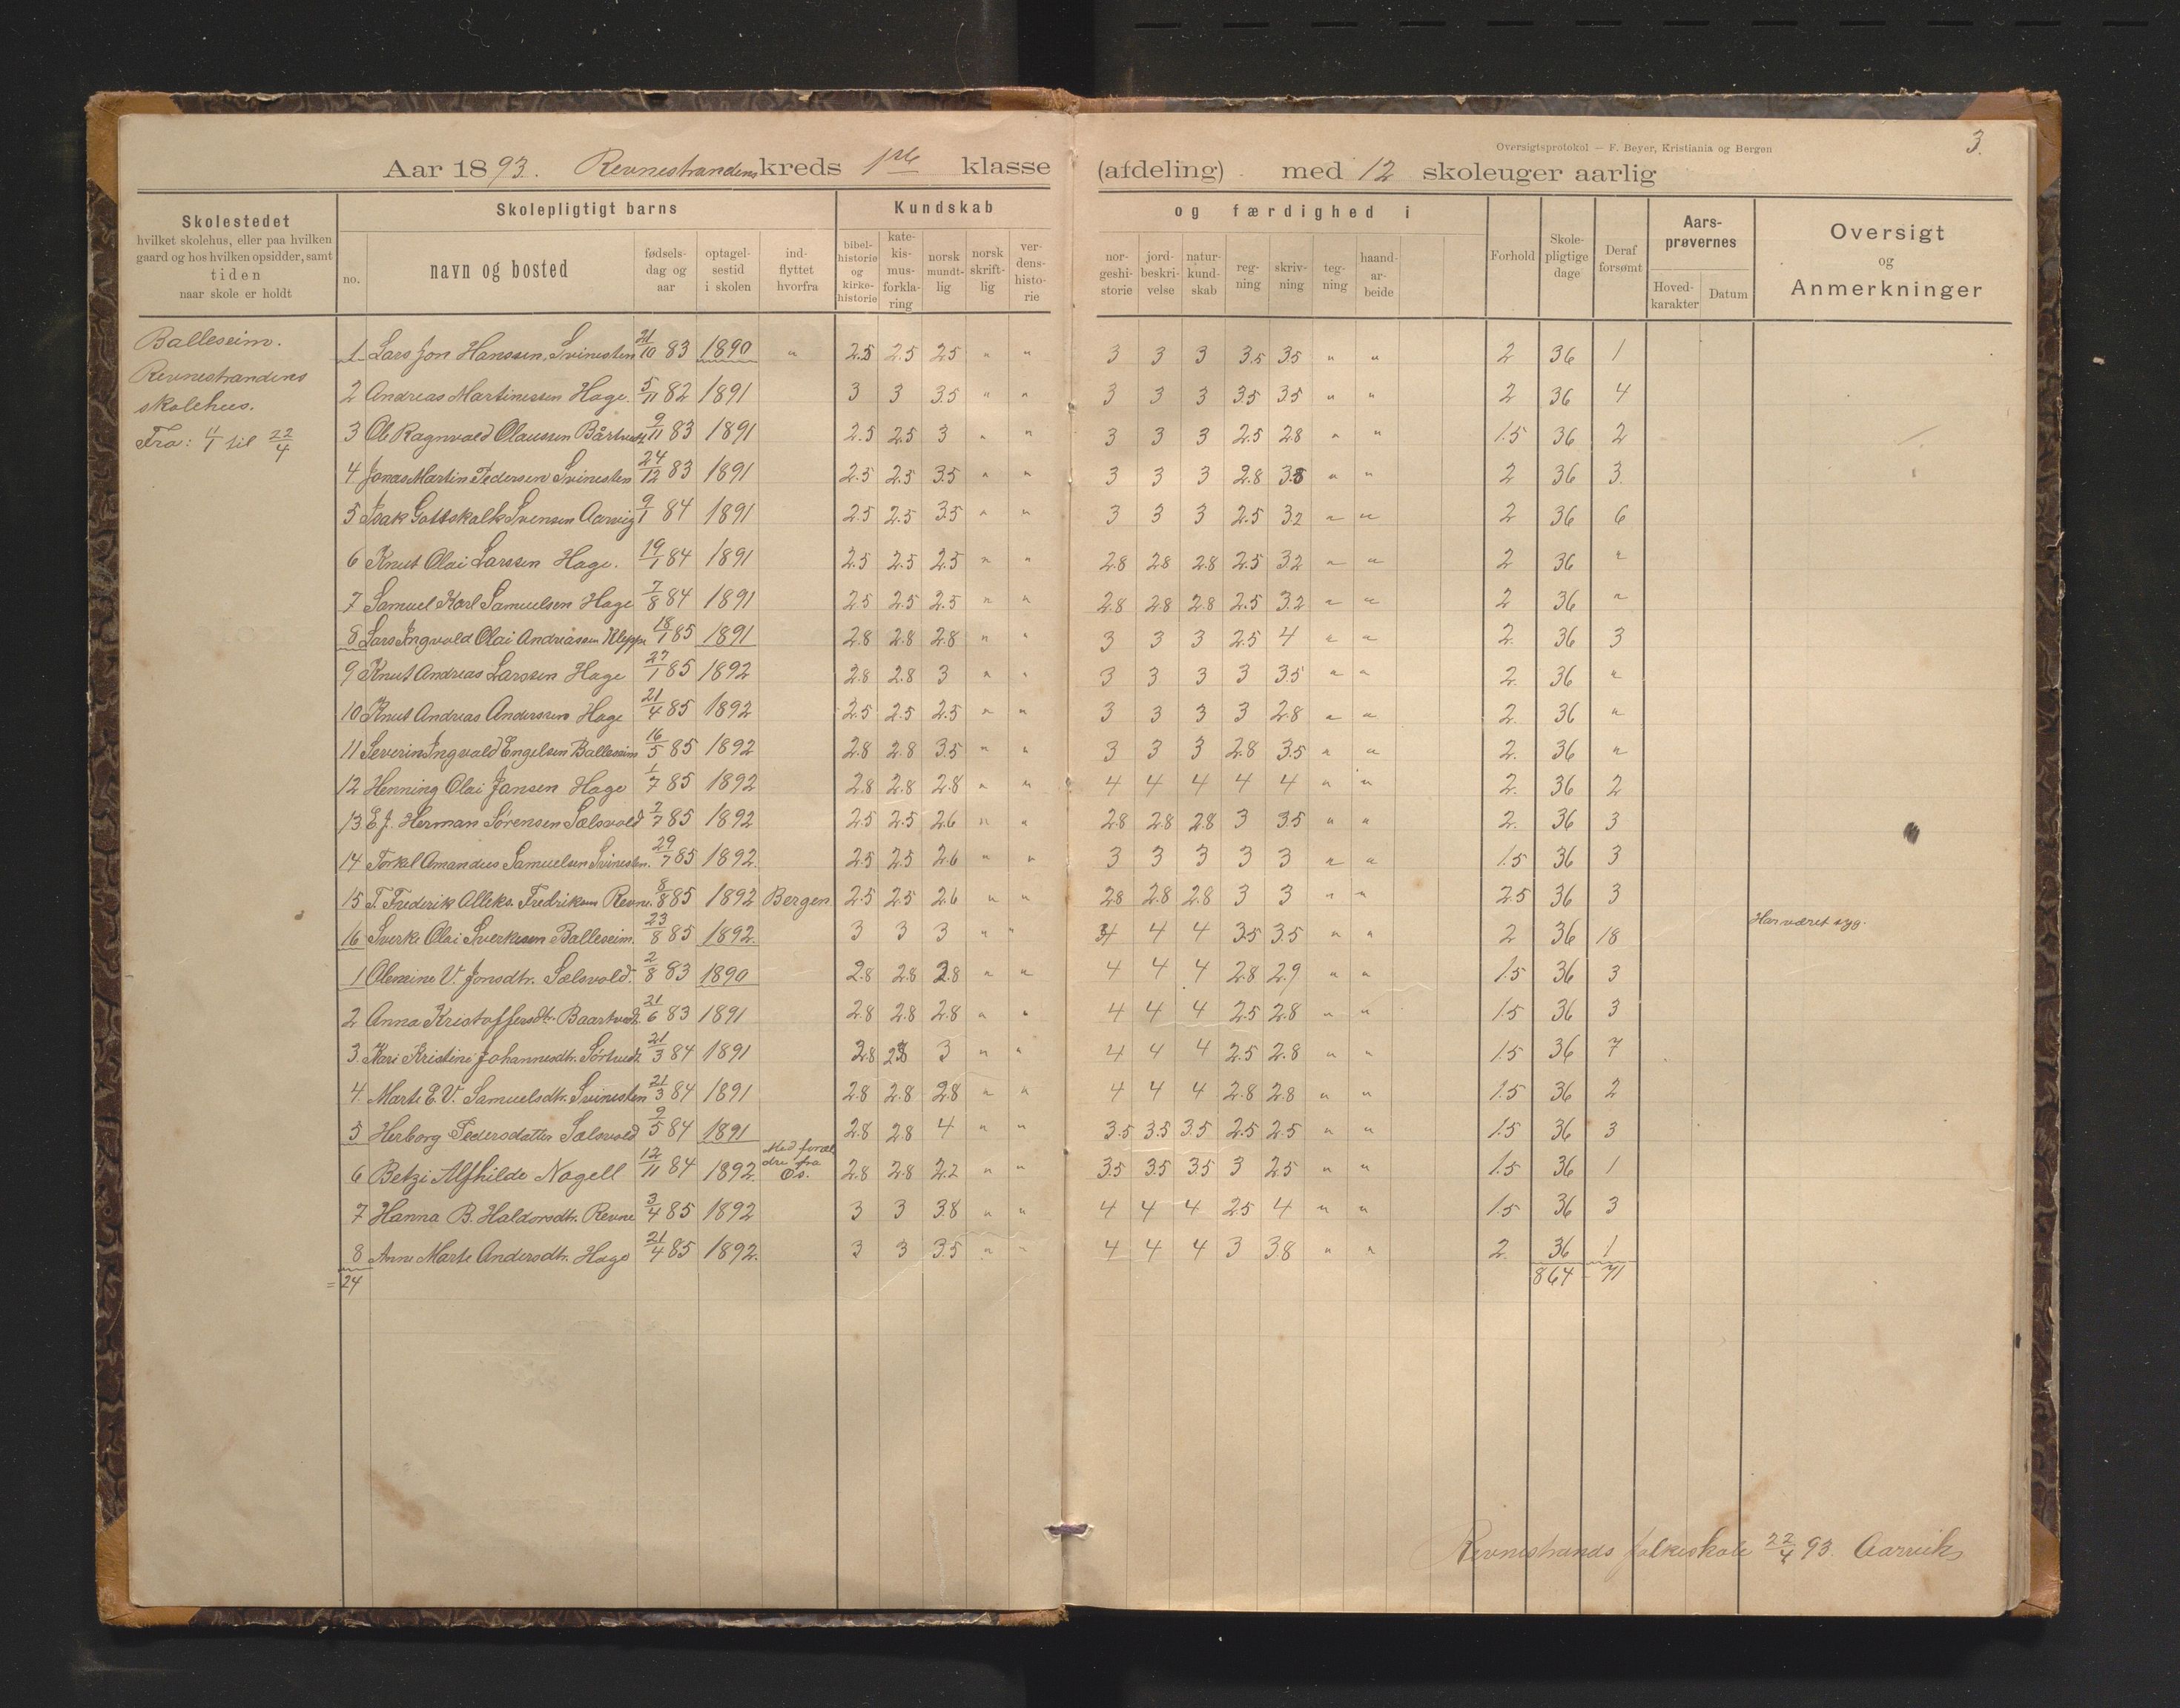 Oversigtsprotokol — F. Beyer, Kristiania og Bergen
3.
Aar 1893. Revnestrandens kreds 1ste klasse (afdeling) med 12 skoleuger aarlig
Skolestedet
hvilket skolehus, eller paa hvilken
gaard og hos hvilken opsidder, samt
tiden
naar skole er holdt
Skolepligtigt barns
no.
navn og bosted
fødsels-
dag og
aar
optagel-
sestid
i skolen
ind-
flyttet
hvorfra
Kundskab og færdighed i
bibel-
historie
og
kirke-
historie
kate-
kis-
mus-
forkla-
ring
norsk
mundt-
lig
norsk
skrift-
lig
ver-
dens-
histo-
rie
nor-
geshi-
storie
jord-
beskri-
velse
natur-
kund-
skab
reg-
ning
skriv-
ning
teg-
ning
haand-
ar-
beide
Forhold
Skole-
pligtige
dage
Deraf
forsømt
Aars-
prøvernes
Hoved-
karakter
Datum
Oversigt
og
Anmerkninger
Balleseim.
Revnestrandens
skolehus.
Fra: 11/1 til 22/4
1 Lars Jon Hanssen, Svinesten 21/10 83 1890 " 2.5 2.5 2.5 " " 3 3 3 3.5 3.5 " " 2 36 1
2 Andreas Martinessen Hage. 5/11 82 1891 3 3 3.5 " " 3 3 3 3.5 3.5 " " 2 36 4
3 Ole Ragnvald Olaussen Bårtvedt 9/11 83 1891 2.5 2.5 3 " " 3 3 3 2.5 2.8 " " 1.5 36 2
4. Jonas Martin Pedersen Svinesten 24/12 83 1891 2.5 2.5 3.5 " " 3 3 3 2.8 3.8 " " 2 36 3.
5 Isak Gottskalk Svensen Aarvig 9/1 84 1891 2.5 2.5 3.5 " " 3 3 3 2.5 3.2 " " 2 36 6
6 Knut Olai Larssen Hage. 19/1 84 1891 2.5 2.5 2.5 " " 2.8 2.8 2.8 2.5 3.2 " " 2 36 "
7 Samuel Karl Samuelsen Hage 7/8 84 1891 2.5 2.5 2.5 " " 2.8 2.8 2.8 2.5 3.2 " " 2 36 "
8 Lars Ingvald Olai Andreassen Kleppe 18/1 85 1891 2.8 2.8 2.8 " " 3 3 3 2.5 4 " " 2. 36 3
9 Knut Andreas Larssen Hage 27/1 85 1892 2.8 2.8 3 " " 3 3 3 3 3.5 " " 2. 36 "
10 Knut Andreas Anderssen Hage 21/4 85 1892 2.5 2.5 2.5 " " 3 3 3 3 2.8 " " 2. 36 "
11 Severin Ingvald Engelsen Balleseim 16/5 85 1892 2.8 2.8 3.5 " " 3 3 3 2.8 3.5 " " 2. 36 "
12 Henning Olai Jansen Hage 1/7 85 1892 2.8 2.8 2.8 " " 4 4 4 4 4 " " 2. 36 2
13 E. J. Herman Sørensen Sælsvold 2/7 85 1892 2.5 2.5 2.6 " " 2.8 2.8 2.8 3 3.5 " " 2. 36 3
14 Torkel Amandus Samuelsen Svinesten. 29/7 85 1892. 2.5 2.5 2.6 " " 3 3 3 3 3 " " 1.5 36 3
15 T. Frederik Alleks. Fredriksen Revne. 8/8 85 1892 Bergen 2.5 2.5 2.6 " " 2.8 2.8 2.8 3 3 " " 2.5 36 3
16 Sverke Olai Sverkesen Balleseim. 23/8 85 1892. 3 3 3 " " 4 4 4 3.5 3.5 " " 2 36 18 Har været syg.
1 Olesine V. Jonsdtr. Sælsvold. 2/8 83 1890 2.8 2.8 2.8 " " 4 4 4 2.8 2.9 " " 1.5 36 3
2 Anna Kristoffersdtr. Baartvedt 21/6 83 1891 2.8 2.8 2.8 " " 4 4 4 2.5 2.8 " " 1.5 36 3
3. Kari Kristine Johannesdtr. Sørtvedt 21/3 84 1891 2.8 2.8 3 " " 4 4 4 2.5 2.8 " " 1.5 36 7
4. Marte E. V. Samuelsdtr. Svinesten 21/3 84 1891 2.8 2.8 2.8 " " 4 4 4 2.8 2.8 " " 1.5 36 2
5 Herborg Pedersdatter Sælsvold 9/5 84 1891 2.8 2.8 4 " " 3.5 3.5 3.5 2.5 2.5 " " 1.5 36 3
6 Betzi Alfhilde Nagell 12/11 84 1892. Med foræl dre fra Os. 2.8 2.8 2.2 " " 3.5 3.5 3.5 3 2.5 " " 1.5 36 1
7 Hanna B. Haldorsdtr. Revne 3/4 85 1892 3 3 3.8 " " 4 4 4 2.5 4 " " 1.5 36 3
8 Anne Marte Andersdtr. Hage 21/4 85 1892. 3 3 3.5 " " 4 4 4 3 3.8 " " 2. 36 1
= 24 864 - 71
Revnestrands folkeskole 22/4 93. Aarvik